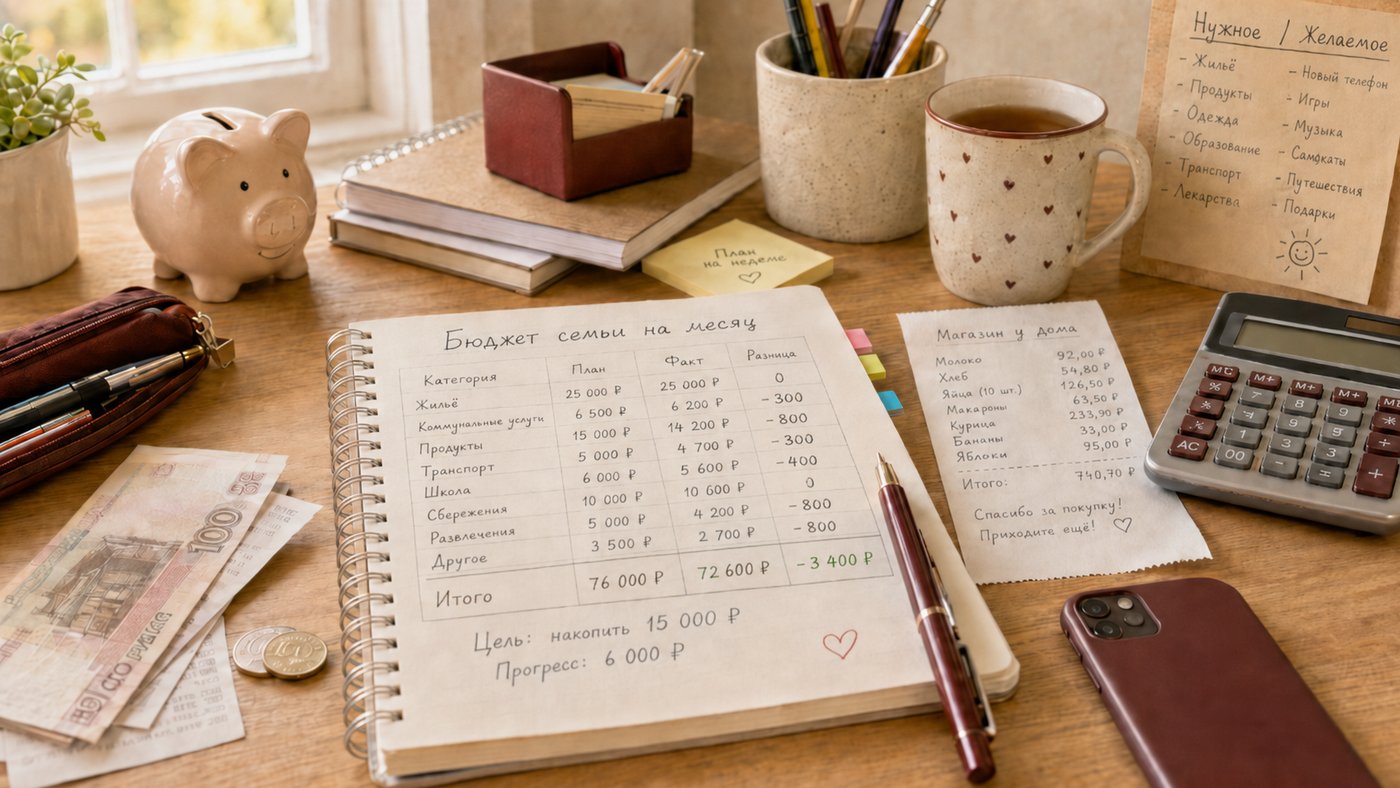 Нужное / Желаемое
- Жильё - Новый телефон
- Продукты - Игры
- Одежда - Музыка
- Образование
- Транспорт - Путешествия
- Лекарства - Подарки
План
на недеме
Бюджет семьи на месяц
Категория План Факт Разница
Жильё 25 000 ₽ 25 000 ₽ 0
Коммунальные услуги 6 500 ₽ 6 200 ₽ - 300
Продукты 15 000 ₽ 14 200 ₽ - 800
Транспорт 5 000 ₽ 4 700 ₽ - 300
Школа 6 000 ₽ 5 600 ₽ - 400
Сбережения 10 000 ₽ 10 600 ₽ 0
Развлечения 5 000 ₽ 4 200 ₽ - 800
Другое 3 500 ₽ 2 700 ₽ - 800
Итого 76 000 ₽ 72 600 ₽ - 3 400 ₽
Цель: накопить 15 000 ₽
Прогресс: 6 000 ₽
Магазин у дома
Молоко 92,00 ₽
Хлеб 54,80 ₽
Яйца (10 шт.) 126,50 ₽
Макароны 63,50 ₽
Курица 233,90 ₽
Бананы 33,00 ₽
Яблоки 95,00 ₽
Итого: 740,70 ₽
Спасибо за покупку!
Приходите ещё!
100
M+ M+
%
AC